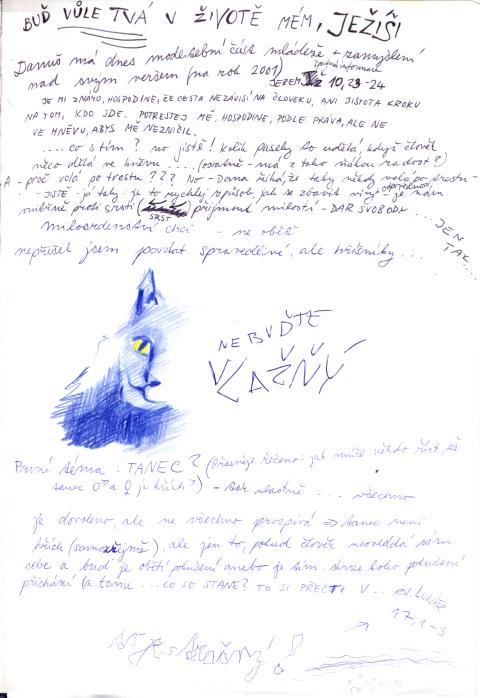 BUĎ VŮLE TVÁ V ŽIVOTĚ MÉM, JEŽÍŠI
Danuš má dnes modlitební část mládeže + zamyšlení
nad svým veršem (na rok 2001)
zpětná informace
JEREM 10, 23-24
JE MI ZNÁMO, HOSPODINE, ŽE CESTA NEZÁVISÍ NA ČLOVĚKU, ANI JISTOTA KROKU
NA TOM, KDO JDE. POTRESTEJ MĚ, HOSPODINE, PODLE PRÁVA, ALE NE
VE HNĚVU, ABYS MĚ NEZNIČIL.
.... co s tím? no jistě! kolik paseky se udělá, když člověk
něco dělá ve hněvu .... (ostatně - má z toho nějakou radost?)
A - proč volá po trestu??? No - Dana říká, že taky někdy volá po trestu -
- JISTĚ - já taky - je to rychlej způsob, jak se zbavit viny
proti srsti
SRST
přijmout milost - DAR SVOBODY ... JEN
TAK....
milosrdenství chci - ne oběť
nepřišel jsem povolat spravedlivé, ale hříšníky...
NEBUĎTE
VLAŽNÝ
První téma: TANEC? (Přesněji řečeno: jak může někdo říct, že
tanec ♂ a ♀ je hřích?) - tak vlastně ... všechno
je dovoleno, ale ne všechno prospívá => tanec není
hřích (samozřejmě), ale jen to, pokud člověk neovládá sám
sebe a buď je obětí pokušení anebo je sám, skrze koho pokušení
přichází (a tomu ... CO SE STANE? TO SI PŘEČTI V ... ev. Lukáše
17, 1-3